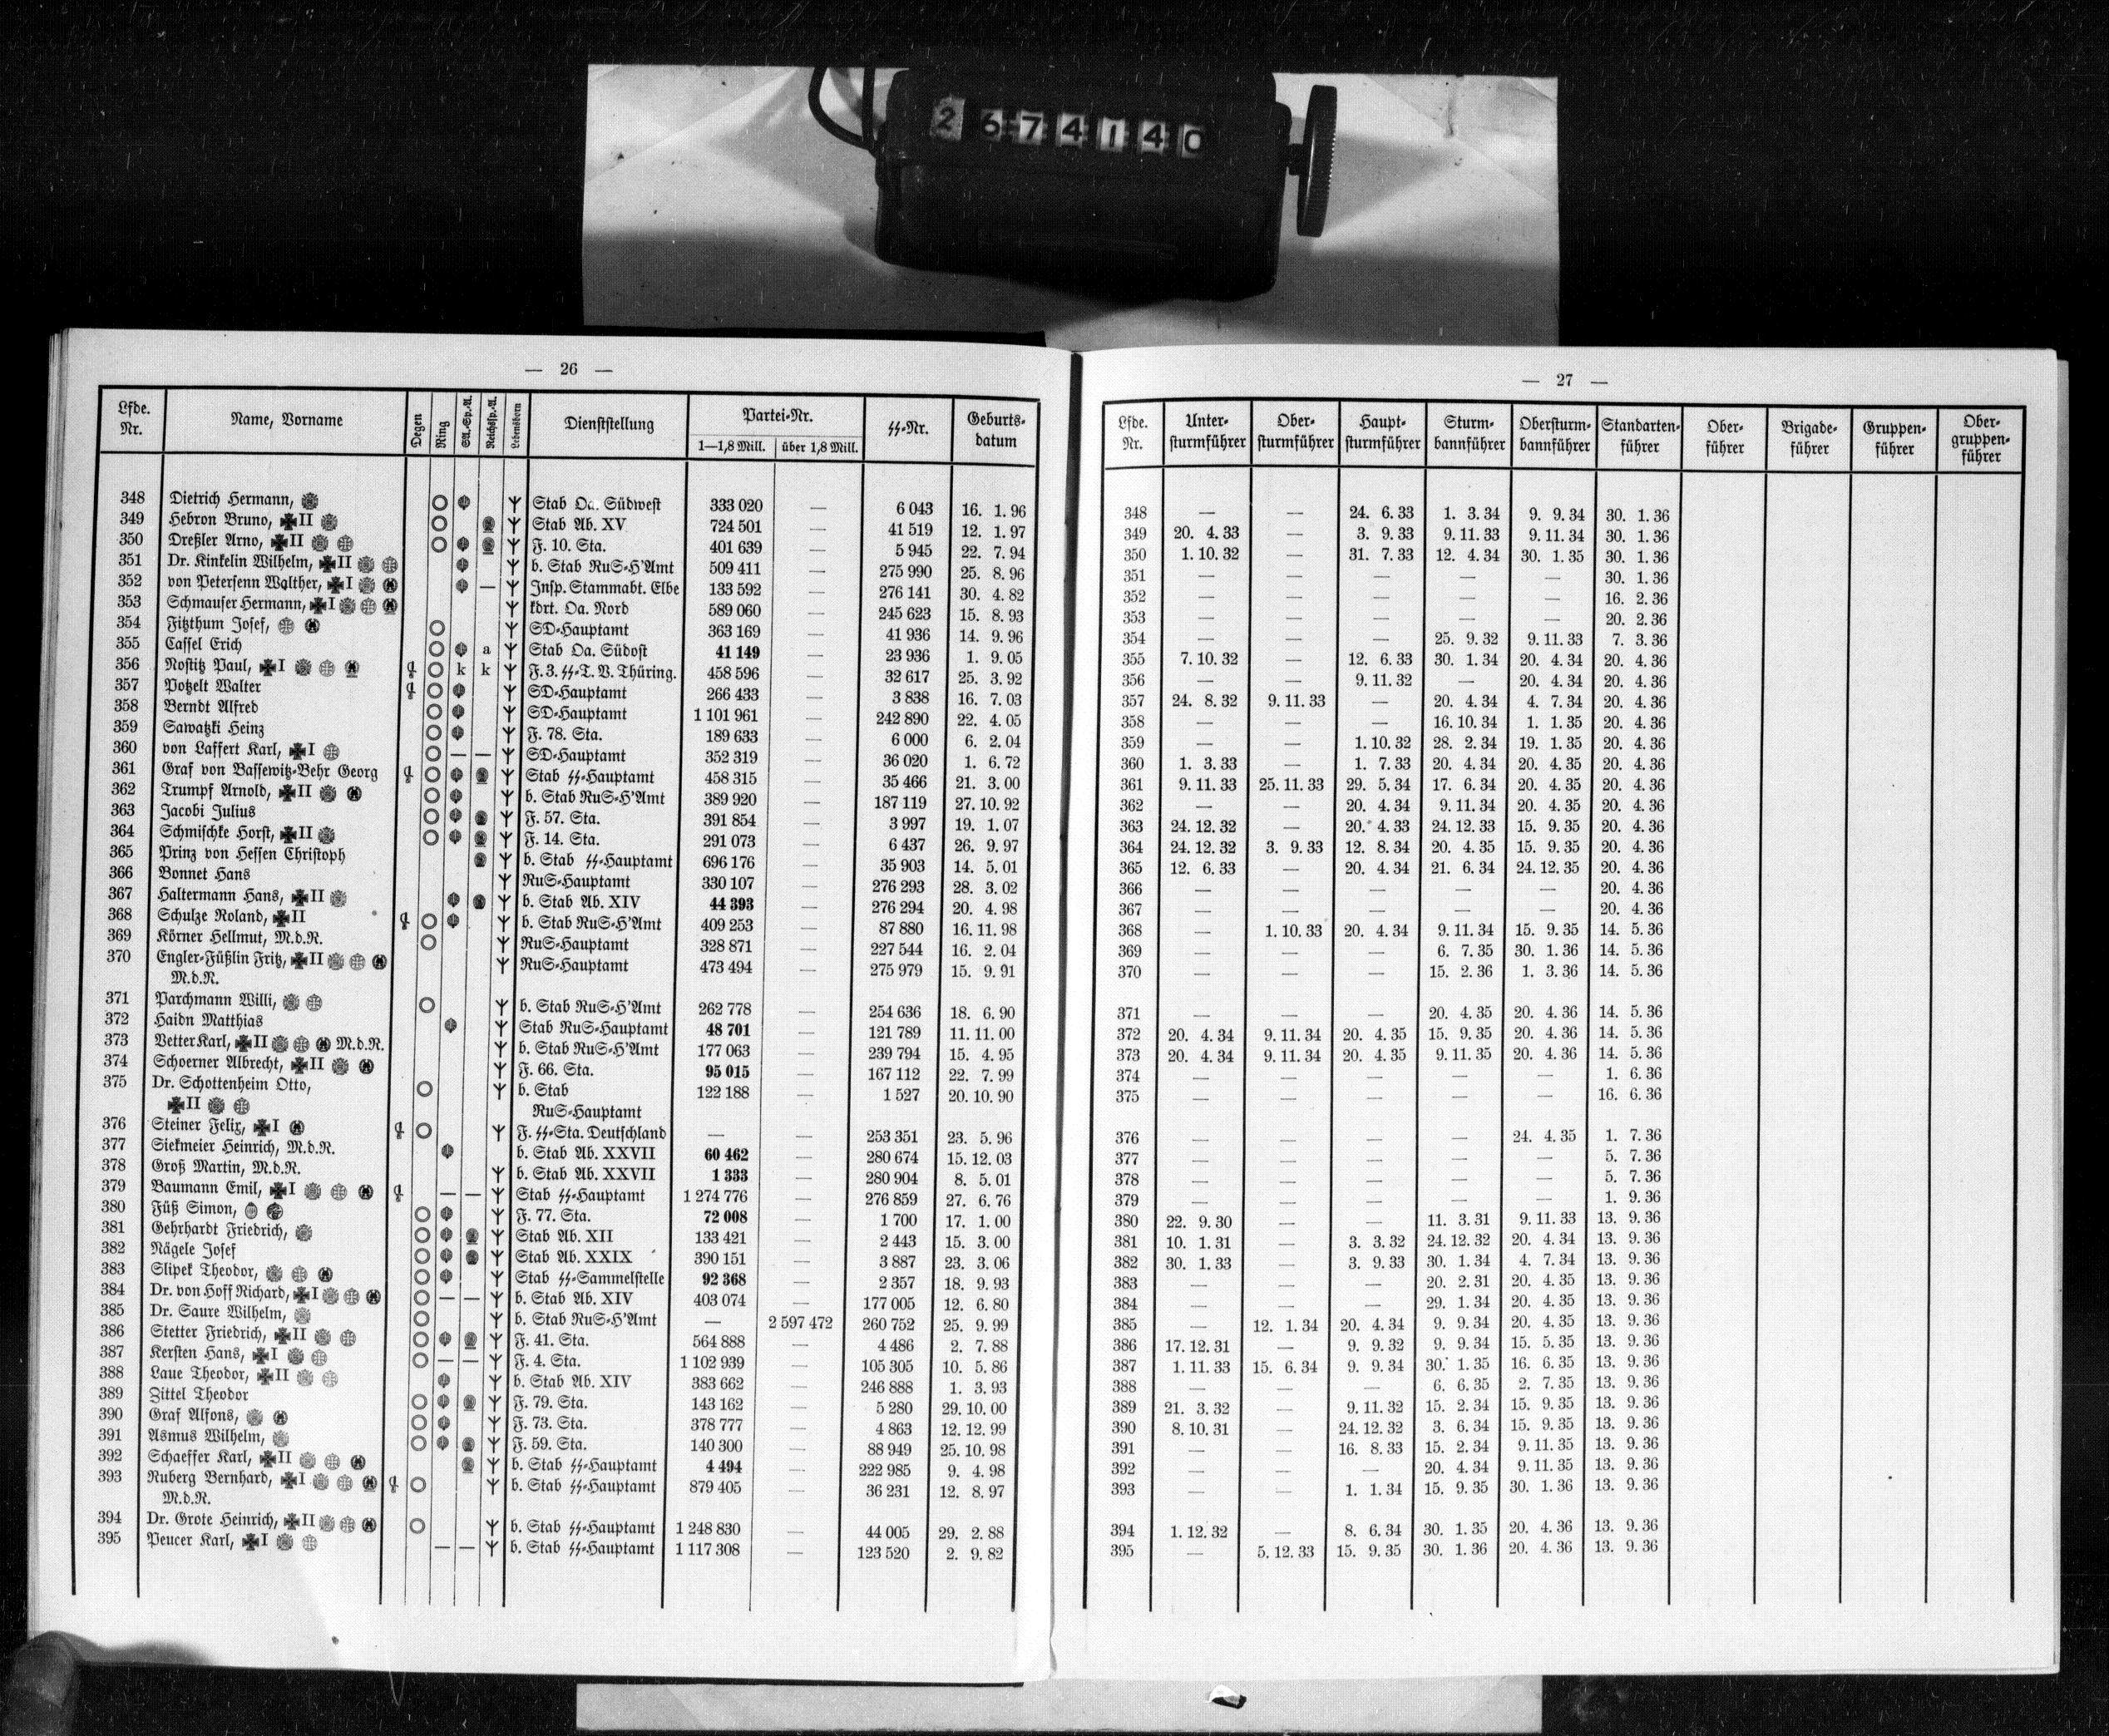 2 6 7 4 1 4 0
— 26 —
Lfde. Nr. Name, Vorname Degen Ring SA.-Sp.-A. Reichssp.-A. Lebensborn Dienststellung Partei-Nr. 1—1,8 Mill. über 1,8 Mill. SS-Nr. Geburts-datum
348 Dietrich Hermann, Stab Oa. Südwest 333 020 — 6 043 16. 1. 96
349 Hebron Bruno, II Stab Ab. XV 724 501 — 41 519 12. 1. 97
350 Dreßler Arno, II F. 10. Sta. 401 639 — 5 945 22. 7. 94
351 Dr. Kinkelin Wilhelm, II b. Stab RuS-H'Amt 509 411 — 275 990 25. 8. 96
352 von Petersenn Walther, I — Insp. Stammabt. Elbe 133 592 — 276 141 30. 4. 82
353 Schmauser Hermann, I kdrt. Oa. Nord 589 060 — 245 623 15. 8. 93
354 Fitzthum Josef, SD-Hauptamt 363 169 — 41 936 14. 9. 96
355 Cassel Erich a Stab Oa. Südost 41 149 — 23 936 1. 9. 05
356 Nostitz Paul, I k k F. 3. SS-T. V. Thüring. 458 596 — 32 617 25. 3. 92
357 Potzelt Walter SD-Hauptamt 266 433 — 3 838 16. 7. 03
358 Berndt Alfred SD-Hauptamt 1 101 961 — 242 890 22. 4. 05
359 Sawatzki Heinz F. 78. Sta. 189 633 — 6 000 6. 2. 04
360 von Laffert Karl, I — — SD-Hauptamt 352 319 — 36 020 1. 6. 72
361 Graf von Bassewitz-Behr Georg Stab SS-Hauptamt 458 315 — 35 466 21. 3. 00
362 Trumpf Arnold, II b. Stab RuS-H'Amt 389 920 — 187 119 27. 10. 92
363 Jacobi Julius F. 57. Sta. 391 854 — 3 997 19. 1. 07
364 Schmischke Horst, II F. 14. Sta. 291 073 — 6 437 26. 9. 97
365 Prinz von Hessen Christoph b. Stab SS-Hauptamt 696 176 — 35 903 14. 5. 01
366 Bonnet Hans RuS-Hauptamt 330 107 — 276 293 28. 3. 02
367 Haltermann Hans, II b. Stab Ab. XIV 44 393 — 276 294 20. 4. 98
368 Schulze Roland, II b. Stab RuS-H'Amt 409 253 — 87 880 16. 11. 98
369 Körner Hellmut, M.d.R. RuS-Hauptamt 328 871 — 227 544 16. 2. 04
370 Engler-Füßlin Fritz, II RuS-Hauptamt 473 494 — 275 979 15. 9. 91
M.d.R.
371 Parchmann Willi, b. Stab RuS-H'Amt 262 778 — 254 636 18. 6. 90
372 Haidn Matthias Stab RuS-Hauptamt 48 701 — 121 789 11. 11. 00
373 Vetter Karl, II M.d.R. b. Stab RuS-H'Amt 177 063 — 239 794 15. 4. 95
374 Schoerner Albrecht, II F. 66. Sta. 95 015 — 167 112 22. 7. 99
375 Dr. Schottenheim Otto, b. Stab 122 188 — 1 527 20. 10. 90
II RuS-Hauptamt
376 Steiner Felix, I F. SS-Sta. Deutschland — — 253 351 23. 5. 96
377 Siekmeier Heinrich, M.d.R. b. Stab Ab. XXVII 60 462 — 280 674 15. 12. 03
378 Groß Martin, M.d.R. b. Stab Ab. XXVII 1 333 — 280 904 8. 5. 01
379 Baumann Emil, I — — Stab SS-Hauptamt 1 274 776 — 276 859 27. 6. 76
380 Füß Simon, F. 77. Sta. 72 008 — 1 700 17. 1. 00
381 Gehrhardt Friedrich, Stab Ab. XII 133 421 — 2 443 15. 3. 00
382 Nägele Josef Stab Ab. XXIX 390 151 — 3 887 23. 3. 06
383 Slipek Theodor, Stab SS-Sammelstelle 92 368 — 2 357 18. 9. 93
384 Dr. von Hoff Richard, I — — b. Stab Ab. XIV 403 074 — 177 005 12. 6. 80
385 Dr. Saure Wilhelm, b. Stab RuS-H'Amt — 2 597 472 260 752 25. 9. 99
386 Stetter Friedrich, II F. 41. Sta. 564 888 — 4 486 2. 7. 88
387 Kersten Hans, I — — F. 4. Sta. 1 102 939 — 105 305 10. 5. 86
388 Laue Theodor, II b. Stab Ab. XIV 383 662 — 246 888 1. 3. 93
389 Zittel Theodor F. 79. Sta. 143 162 — 5 280 29. 10. 00
390 Graf Alfons, F. 73. Sta. 378 777 — 4 863 12. 12. 99
391 Asmus Wilhelm, F. 59. Sta. 140 300 — 88 949 25. 10. 98
392 Schaeffer Karl, II b. Stab SS-Hauptamt 4 494 — 222 985 9. 4. 98
393 Ruberg Bernhard, I b. Stab SS-Hauptamt 879 405 — 36 231 12. 8. 97
M.d.R.
394 Dr. Grote Heinrich, II b. Stab SS-Hauptamt 1 248 830 — 44 005 29. 2. 88
395 Peucer Karl, I — — b. Stab SS-Hauptamt 1 117 308 — 123 520 2. 9. 82
— 27 —
Lfde. Nr. Unter-sturmführer Ober-sturmführer Haupt-sturmführer Sturm-bannführer Obersturm-bannführer Standarten-führer Ober-führer Brigade-führer Gruppen-führer Ober-gruppen-führer
348 — — 24. 6. 33 1. 3. 34 9. 9. 34 30. 1. 36
349 20. 4. 33 — 3. 9. 33 9. 11. 33 9. 11. 34 30. 1. 36
350 1. 10. 32 — 31. 7. 33 12. 4. 34 30. 1. 35 30. 1. 36
351 — — — — — 30. 1. 36
352 — — — — — 16. 2. 36
353 — — — — — 20. 2. 36
354 — — — 25. 9. 32 9. 11. 33 7. 3. 36
355 7. 10. 32 — 12. 6. 33 30. 1. 34 20. 4. 34 20. 4. 36
356 — — 9. 11. 32 — 20. 4. 34 20. 4. 36
357 24. 8. 32 9. 11. 33 — 20. 4. 34 4. 7. 34 20. 4. 36
358 — — — 16. 10. 34 1. 1. 35 20. 4. 36
359 — — 1. 10. 32 28. 2. 34 19. 1. 35 20. 4. 36
360 1. 3. 33 — 1. 7. 33 20. 4. 34 20. 4. 35 20. 4. 36
361 9. 11. 33 25. 11. 33 29. 5. 34 17. 6. 34 20. 4. 35 20. 4. 36
362 — — 20. 4. 34 9. 11. 34 20. 4. 35 20. 4. 36
363 24. 12. 32 — 20. 4. 33 24. 12. 33 15. 9. 35 20. 4. 36
364 24. 12. 32 3. 9. 33 12. 8. 34 20. 4. 35 15. 9. 35 20. 4. 36
365 12. 6. 33 — 20. 4. 34 21. 6. 34 24. 12. 35 20. 4. 36
366 — — — — — 20. 4. 36
367 — — — — — 20. 4. 36
368 — 1. 10. 33 20. 4. 34 9. 11. 34 15. 9. 35 14. 5. 36
369 — — — 6. 7. 35 30. 1. 36 14. 5. 36
370 — — — 15. 2. 36 1. 3. 36 14. 5. 36
371 — — — 20. 4. 35 20. 4. 36 14. 5. 36
372 20. 4. 34 9. 11. 34 20. 4. 35 15. 9. 35 20. 4. 36 14. 5. 36
373 20. 4. 34 9. 11. 34 20. 4. 35 9. 11. 35 20. 4. 36 14. 5. 36
374 — — — — — 1. 6. 36
375 — — — — — 16. 6. 36
376 — — — — 24. 4. 35 1. 7. 36
377 — — — — — 5. 7. 36
378 — — — — — 5. 7. 36
379 — — — — — 1. 9. 36
380 22. 9. 30 — — 11. 3. 31 9. 11. 33 13. 9. 36
381 10. 1. 31 — 3. 3. 32 24. 12. 32 20. 4. 34 13. 9. 36
382 30. 1. 33 — 3. 9. 33 30. 1. 34 4. 7. 34 13. 9. 36
383 — — — 20. 2. 31 20. 4. 35 13. 9. 36
384 — — — 29. 1. 34 20. 4. 35 13. 9. 36
385 — 12. 1. 34 20. 4. 34 9. 9. 34 20. 4. 35 13. 9. 36
386 17. 12. 31 — 9. 9. 32 9. 9. 34 15. 5. 35 13. 9. 36
387 1. 11. 33 15. 6. 34 9. 9. 34 30. 1. 35 16. 6. 35 13. 9. 36
388 — — — 6. 6. 35 2. 7. 35 13. 9. 36
389 21. 3. 32 — 9. 11. 32 15. 2. 34 15. 9. 35 13. 9. 36
390 8. 10. 31 — 24. 12. 32 3. 6. 34 15. 9. 35 13. 9. 36
391 — — 16. 8. 33 15. 2. 34 9. 11. 35 13. 9. 36
392 — — — 20. 4. 34 9. 11. 35 13. 9. 36
393 — — 1. 1. 34 15. 9. 35 30. 1. 36 13. 9. 36
394 1. 12. 32 — 8. 6. 34 30. 1. 35 20. 4. 36 13. 9. 36
395 — 5. 12. 33 15. 9. 35 30. 1. 36 20. 4. 36 13. 9. 36